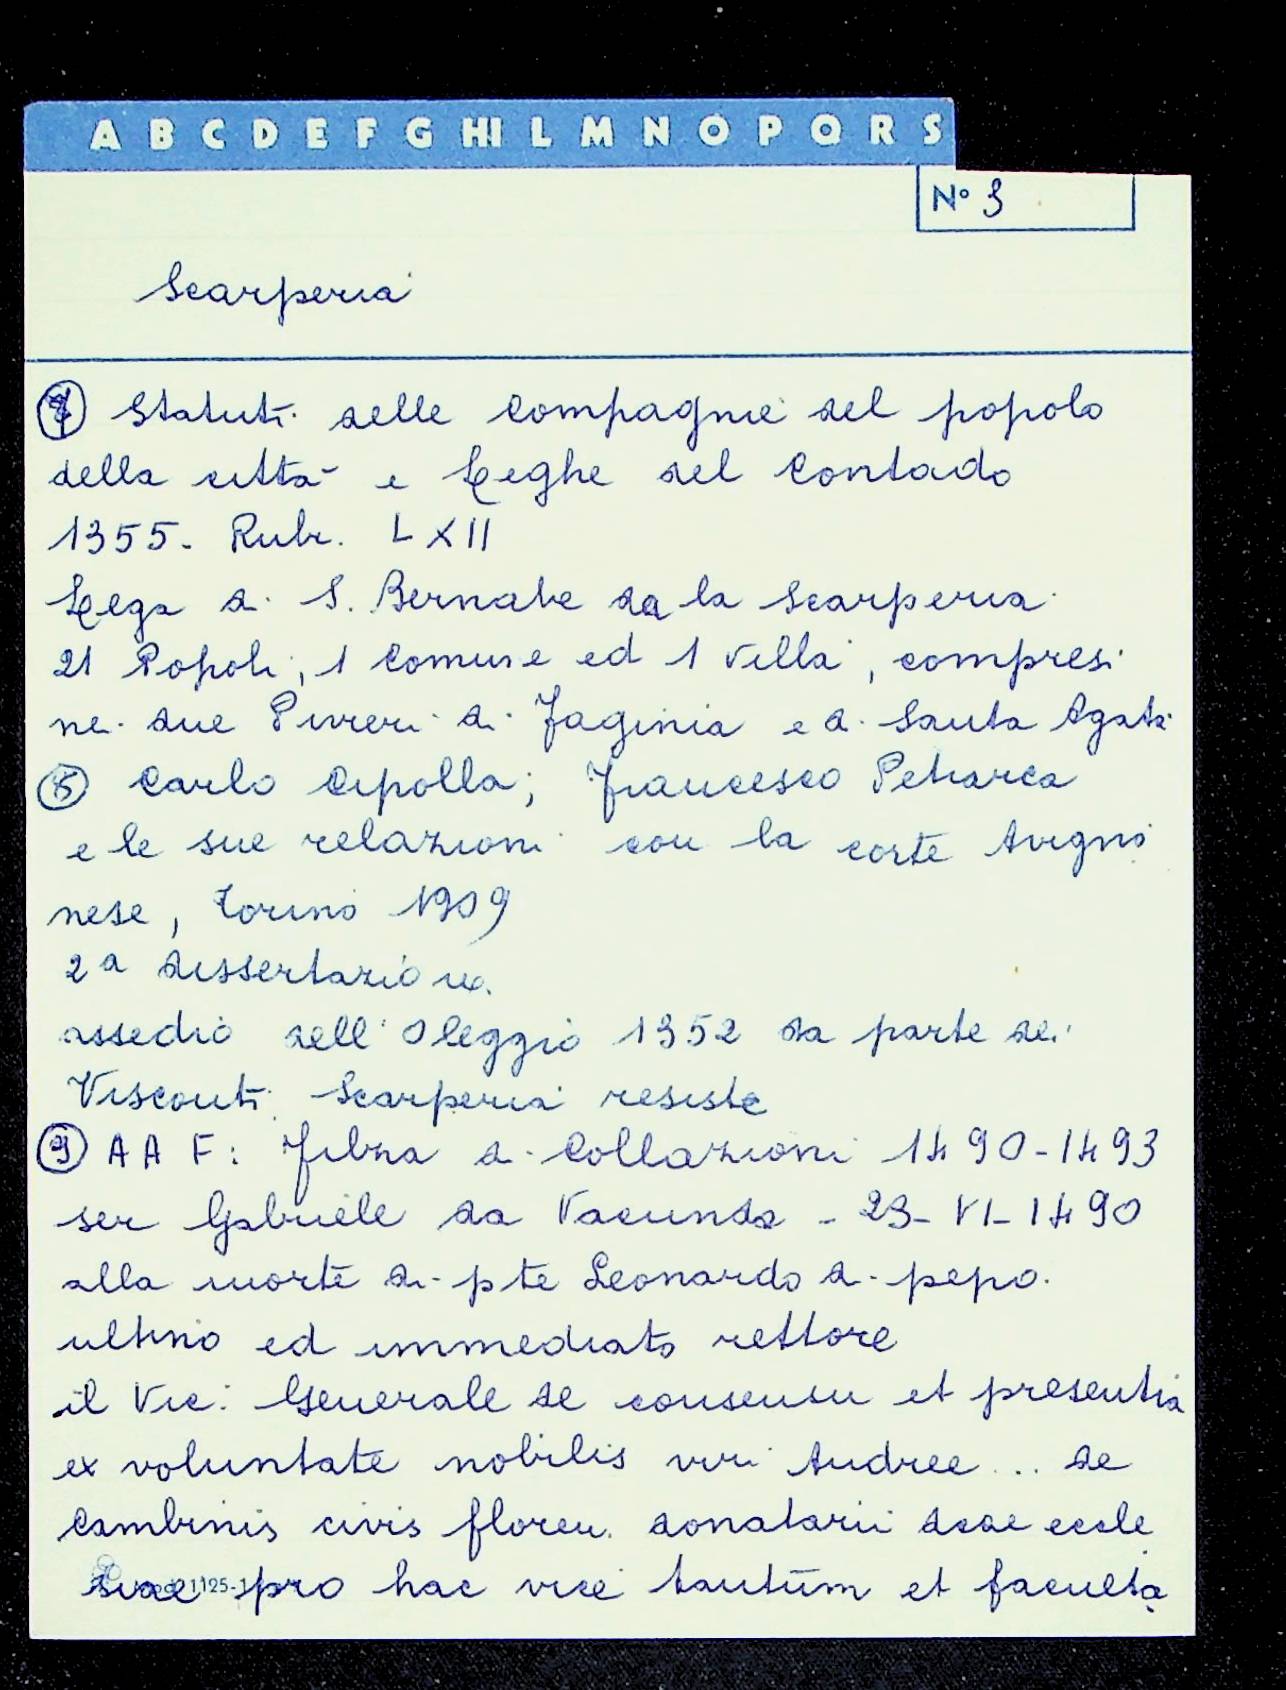 A B C D E F G HI L M N O P Q R S
N° 3
Scarperia
Statuti delle Compagnie del popolo
della città e Leghe del Contado
1355. Rubr. LXII
Lega di S. Bernabe da la Scarperia
21 Popoli, 1 Comune ed 1 Villa, compresi
nei due Pivieri di Faginia e di Santa Agata
5 Carlo Cipolla; Francesco Petrarca
e le sue relazioni con la corte Avigno
nese, Torino 1909
2a dissertazione.
assedio dell'Oleggio 1352 da parte dei
Visconti Scarperia resiste
9 A A F: Filza di Collazioni 1490-1493
ser Gabriele da Vacunda - 23-VI-1490
alla morte di pte Leonardo di pepo.
ultimo ed immediato rettore
il Vic: Generale de consensu et presentia
ex voluntate nobilis viri Andree ... de
Cambinis civis floren. donatarii dcae eccle
siae pro hac vice tantum et faculta